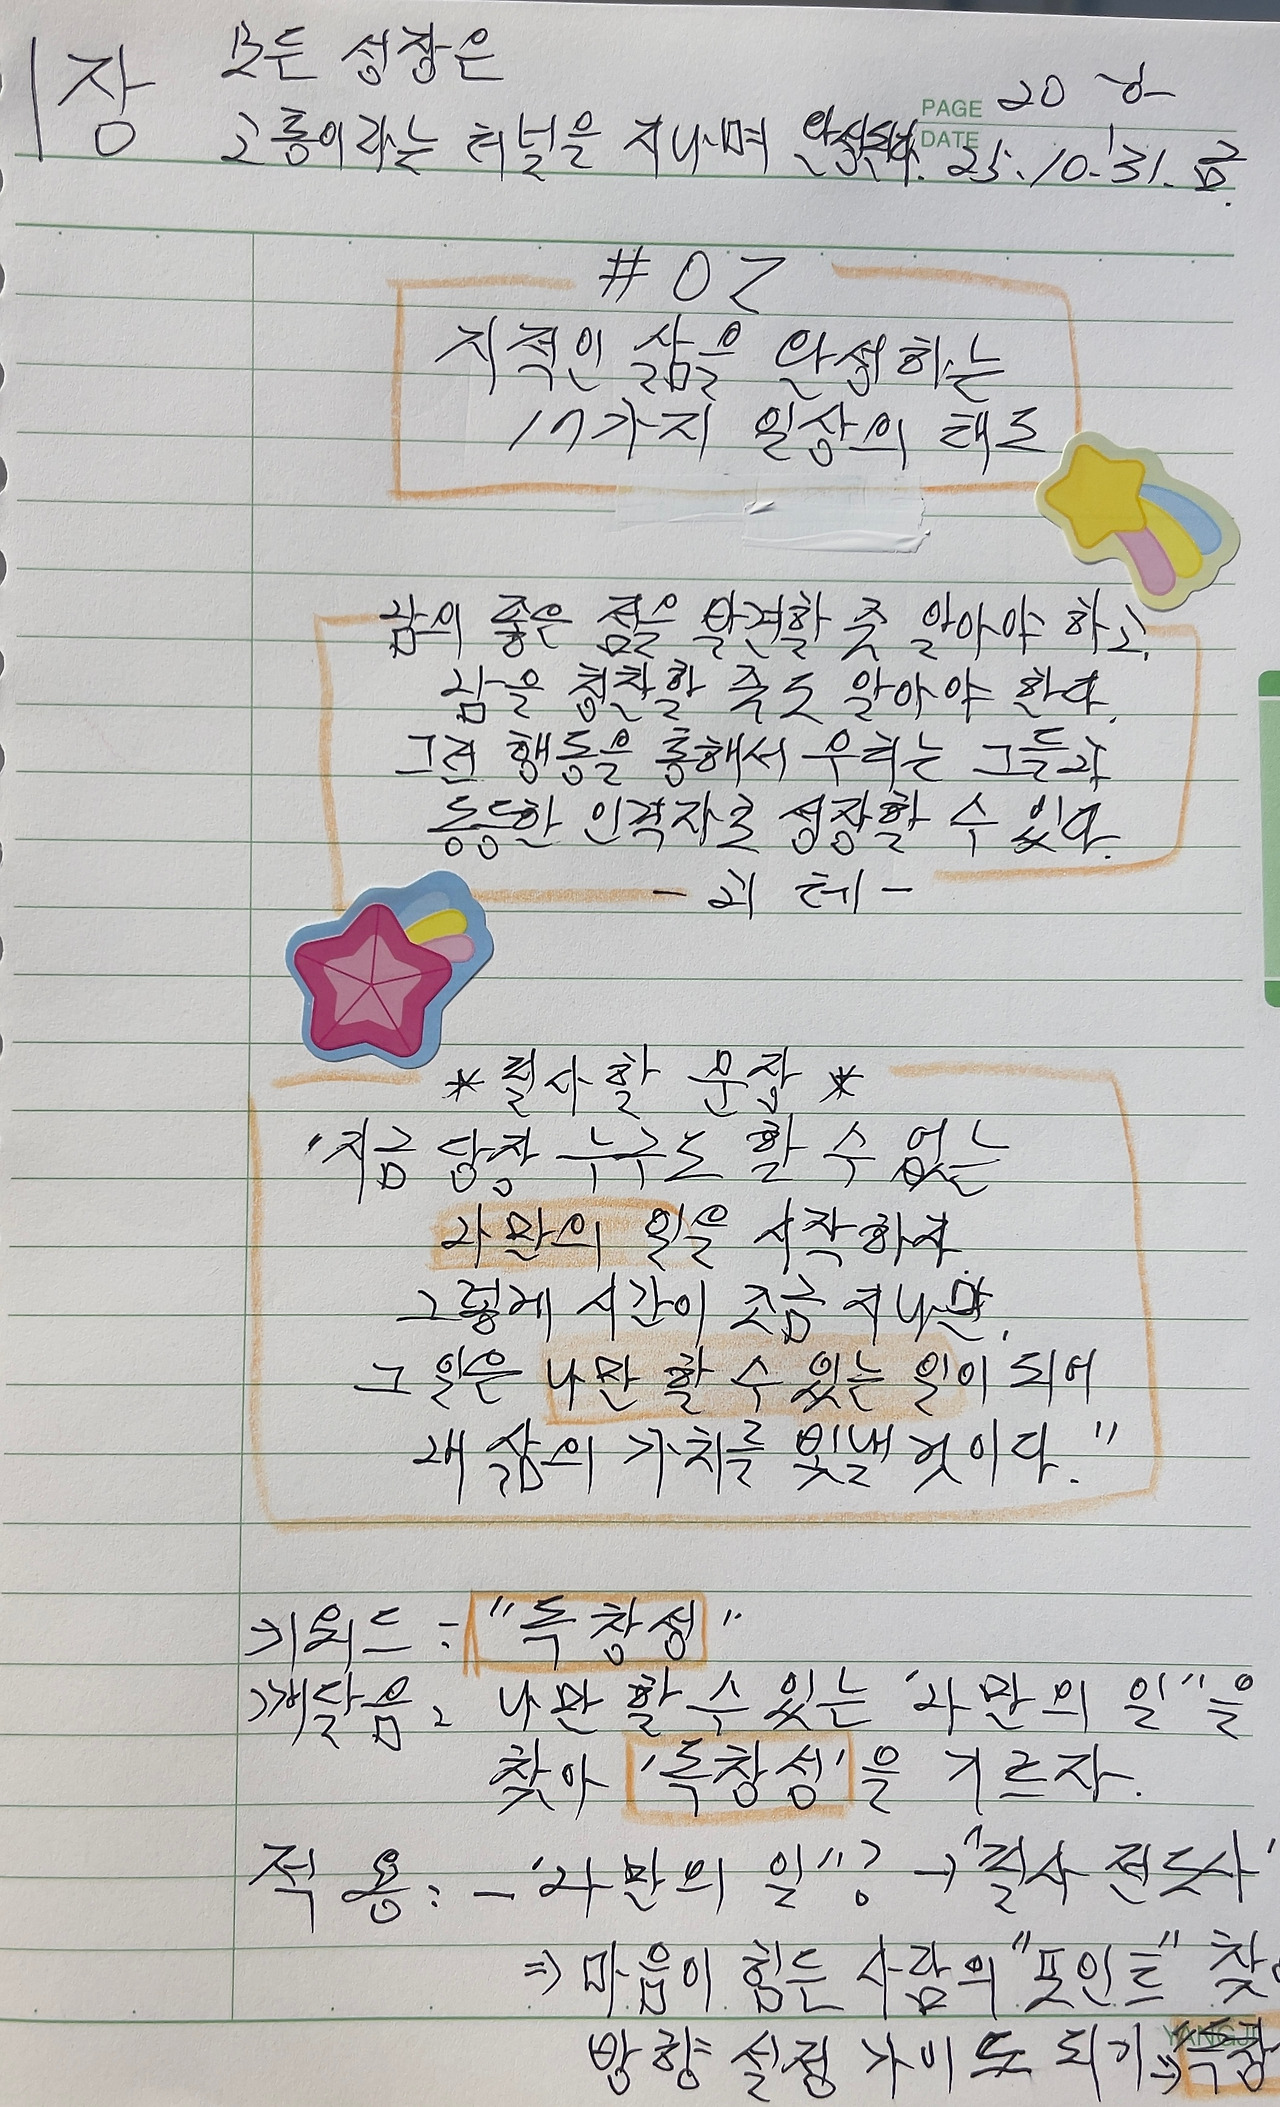 1장 모든 성장은
고통이라는 터널을 지나며 완성된다.
PAGE 20
DATE 25.10.31. 금.
#02
지적인 삶을 완성하는
17가지 일상의 태도
남의 좋은 점을 발견할 줄 알아야 하고,
남을 칭찬할 줄도 알아야 한다.
그런 행동을 통해서 우리는 그들과
동등한 인격자로 성장할 수 있다.
- 괴테 -
* 필사할 문장 *
"지금 당장 누구도 할 수 없는
나만의 일을 시작하자
그렇게 시간이 조금 지나면,
그 일은 나만 할 수 있는 일이 되어
내 삶의 가치를 빛낼 것이다."
키워드 : "독창성"
깨달음: 나만 할 수 있는 '나만의 일"을
찾아 '독창성'을 기르자.
적용: - '나만의 일"? → "필사 전도사"
⇒ 마음이 힘든 사람의 "포인트" 찾
YANGJI
방향 설정 가이드 되기 ⇒ 독창